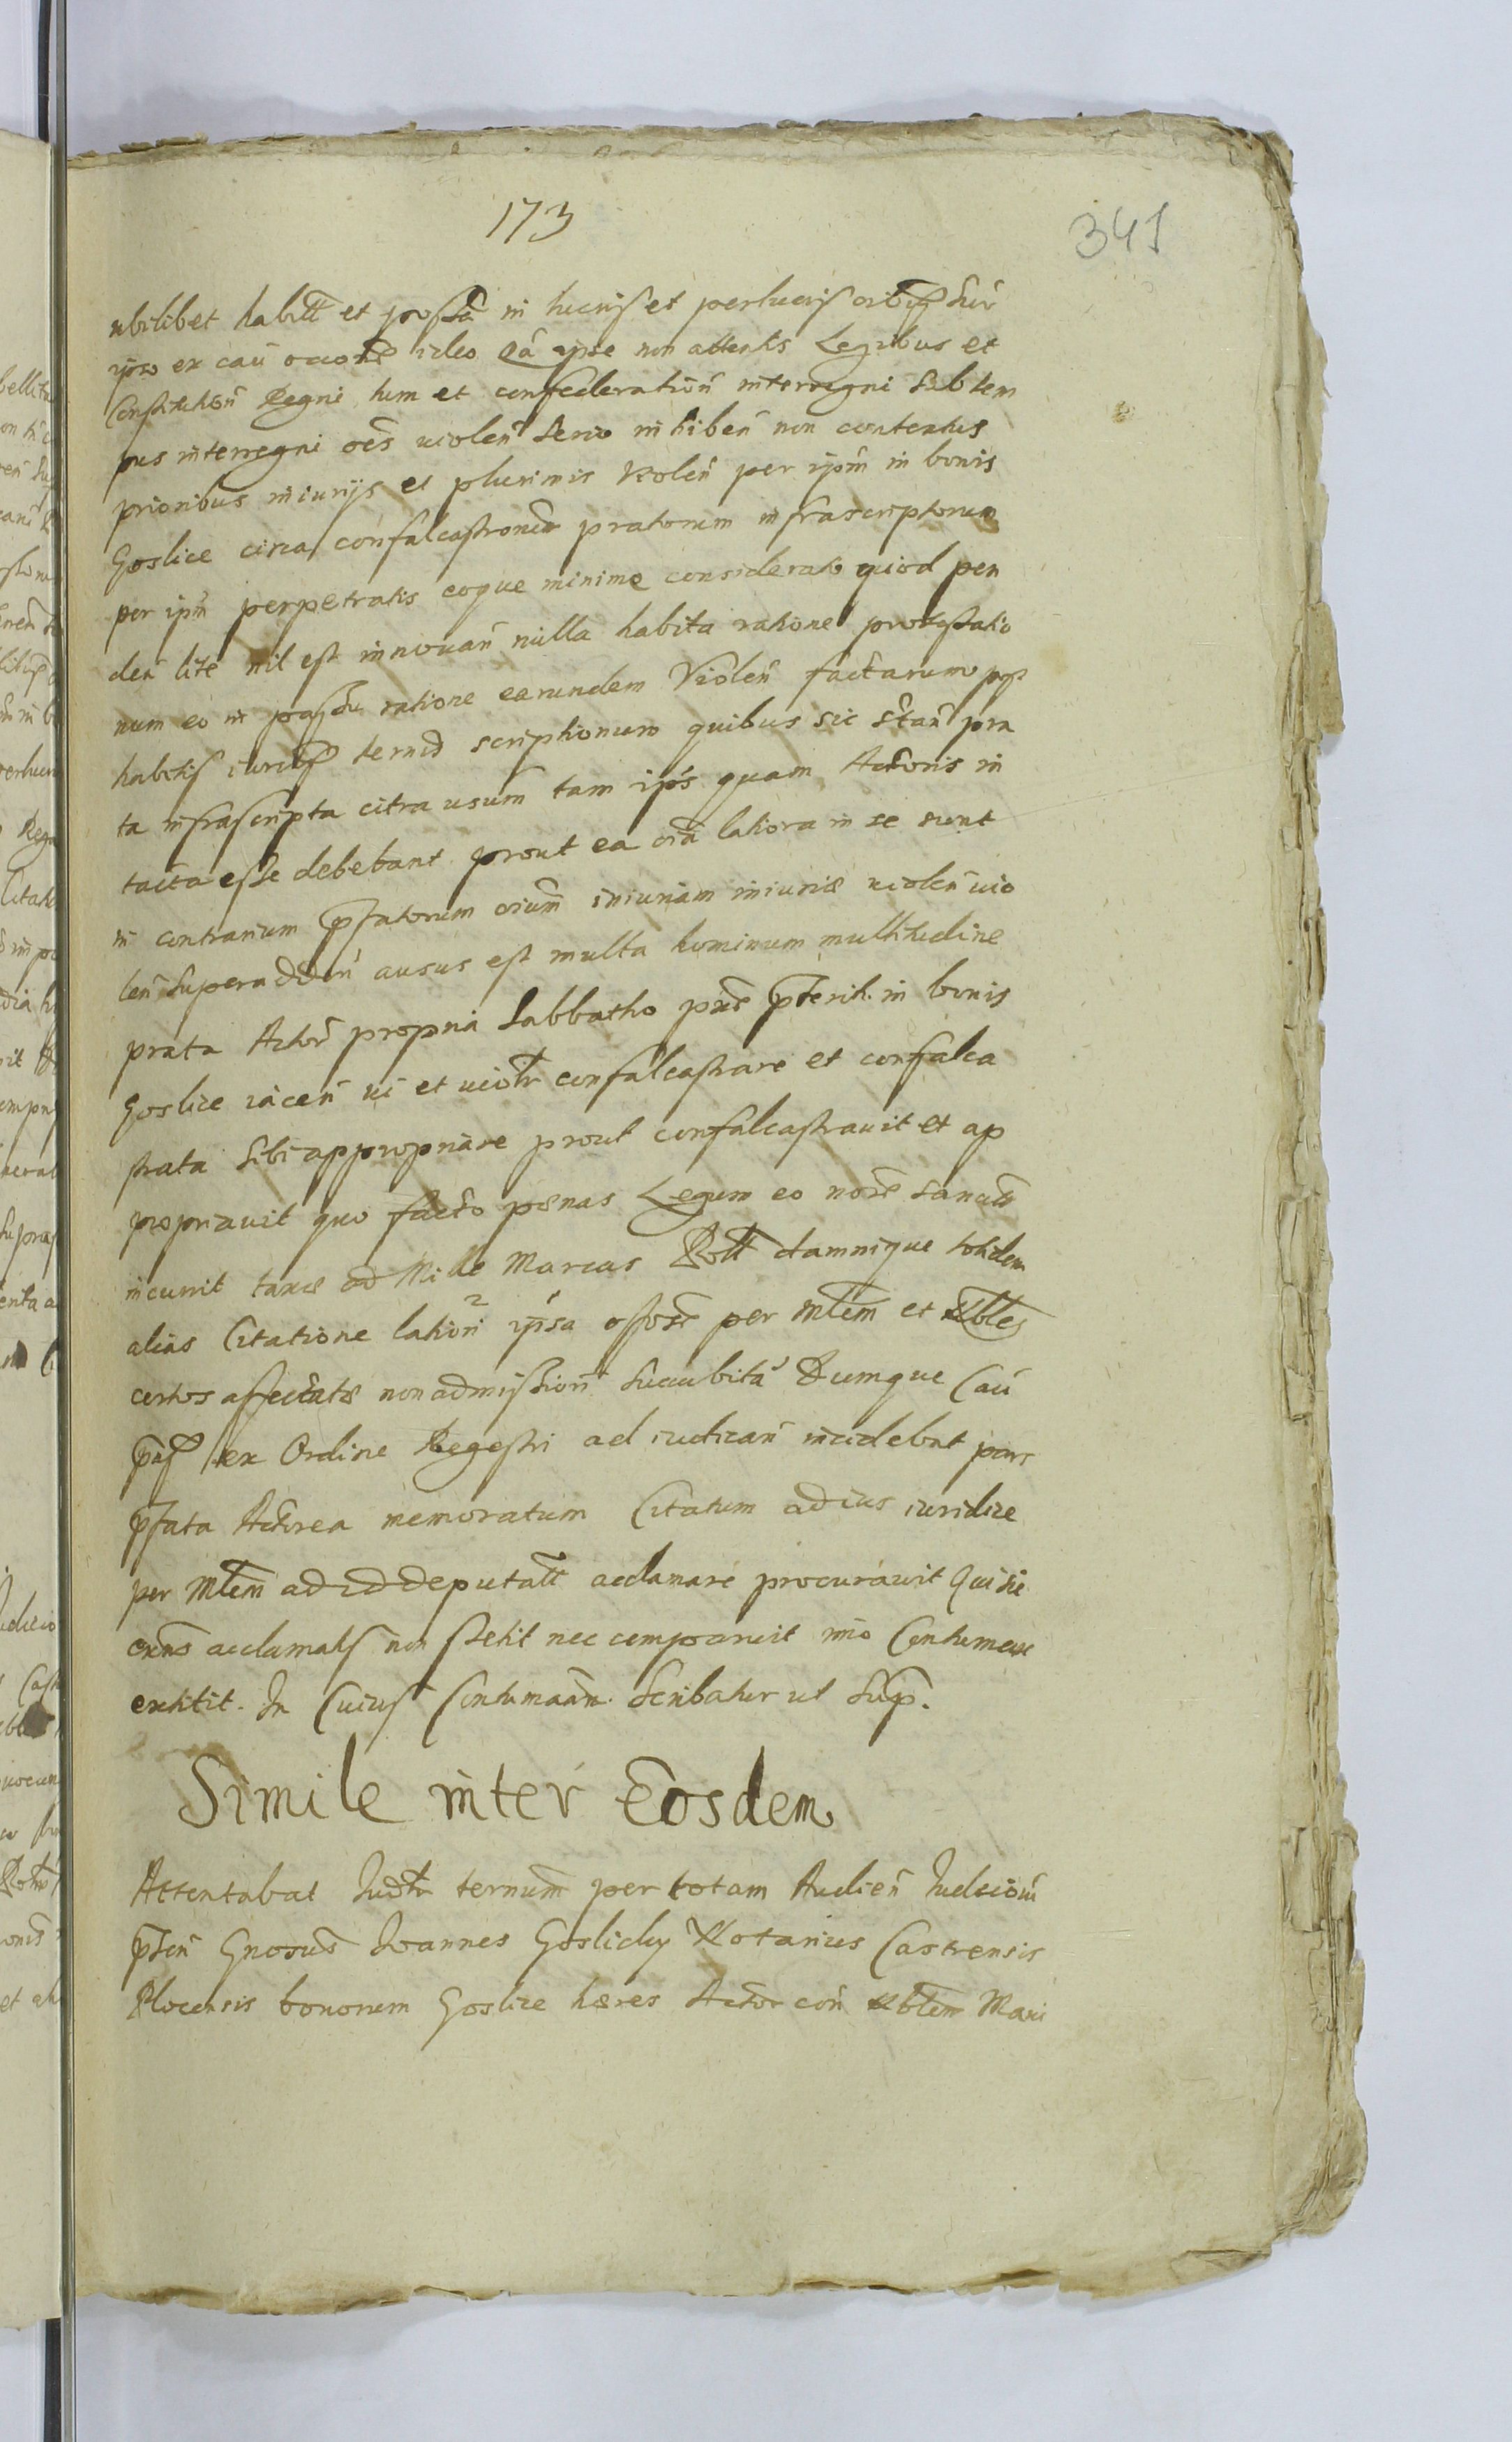 173
341
ubilibet habitt et possa in lucris et perlucris oribus sur
ipso ex cau occone ideo Qa ipse non attentis Legibus et
Constitution Regni tum et confederation interregni sub tem
pus interregni oes violen serio inhiben non contentus
prioribus iniurijs et plurimis violen per ipm in bonis
Goslice circa confalcastrone pratorum infrascriptorum
per ipm perpetratis eoque minime considerato quod pen
den lite nil est innovan nulla habita ratione protestatio
num eo in passu ratione earundem Violen factarum
habitis scriptionum quibus sic stan pra
ta infrascripta citra usum tam ips quam Actoris in
tacta esse debebant prout ea oia latiora in se sunt
in contrarium pfatorum oium iniuriam iniuriae violen vio
len superadden ausus est multa hominum multitudine
prata Actor propria Sabbatho pterit. in bonis
Goslice iacen vi et violtr confalcastrare et confalca
strata sibi appropriare prout confalcastravit et ap
propriavit quo facto paenas Legum eo noie sancitt
incurrit taxae ad Mille Marcas Poll damnique totidem
alias Citatione lation ipsa offose per Mlem et Nbles
certos affectatae non admission succubita Dumque Cau
pns ex Ordine Regestri ad iudican incidebat pars
pfata Actorea memoratum Citatum ad ius iuridice
per Mlem ad id deputatt acclamare procuravit Qui sic
acclamats non stetit nec comparuit imo Contumax
extitit. In Cuius Contumaam. scribatur ut sup.
Simile inter Eosdem
Attentabat Judtr ternum per totam Audien Judiciom
pten Gnosus Joannes Goslicky Notarius Castrensis
Plocensis bonorum Goslice haeres Actor con Nblem Mari